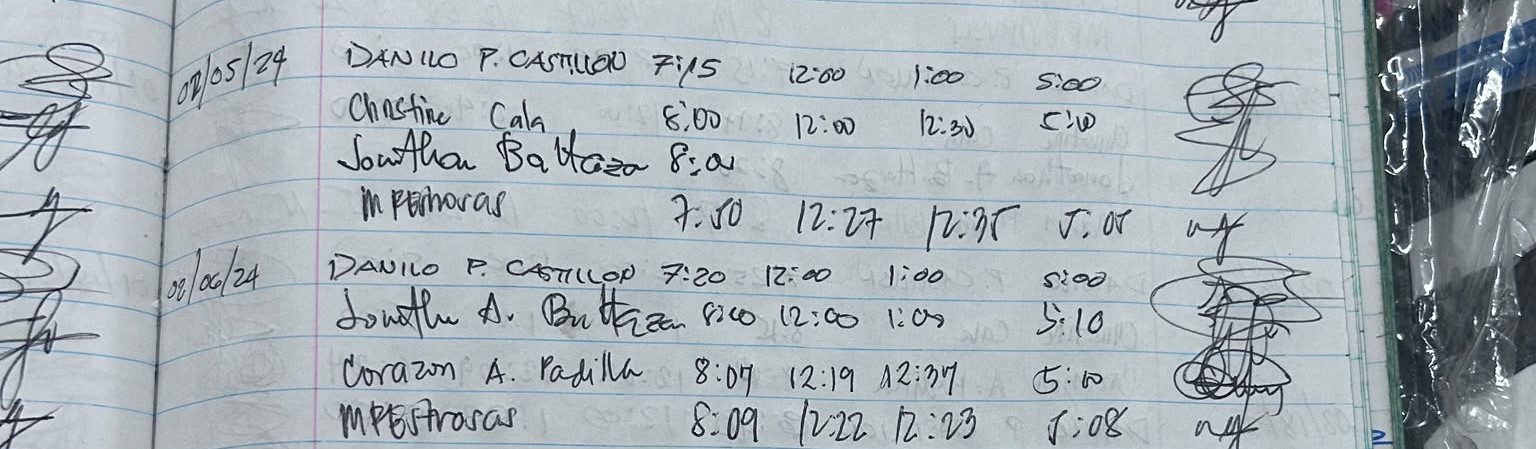 02/05/24 DANILO P. CASTILLON 7:15 12:00 1:00 5:00
Christine Cala 8:00 12:00 12:30 5:10
Jonathan Baltazar 8:00
MPEstrosas 7:50 12:27 12:35 5:05
02/06/24 DANILO P. CASTILLON 7:20 12:00 1:00 5:00
Jonathan A. Baltazar 8:00 12:00 1:00 5:10
Corazon A. Padilla 8:07 12:19 12:37 5:10
MPEstrosas 8:09 12:22 12:23 5:08